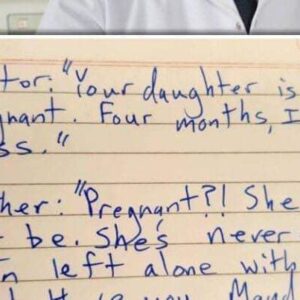 tor: "Your daughter is
gnant. Four months, I
ss."
her: "Pregnant?! She
t be. She's never
n left alone with